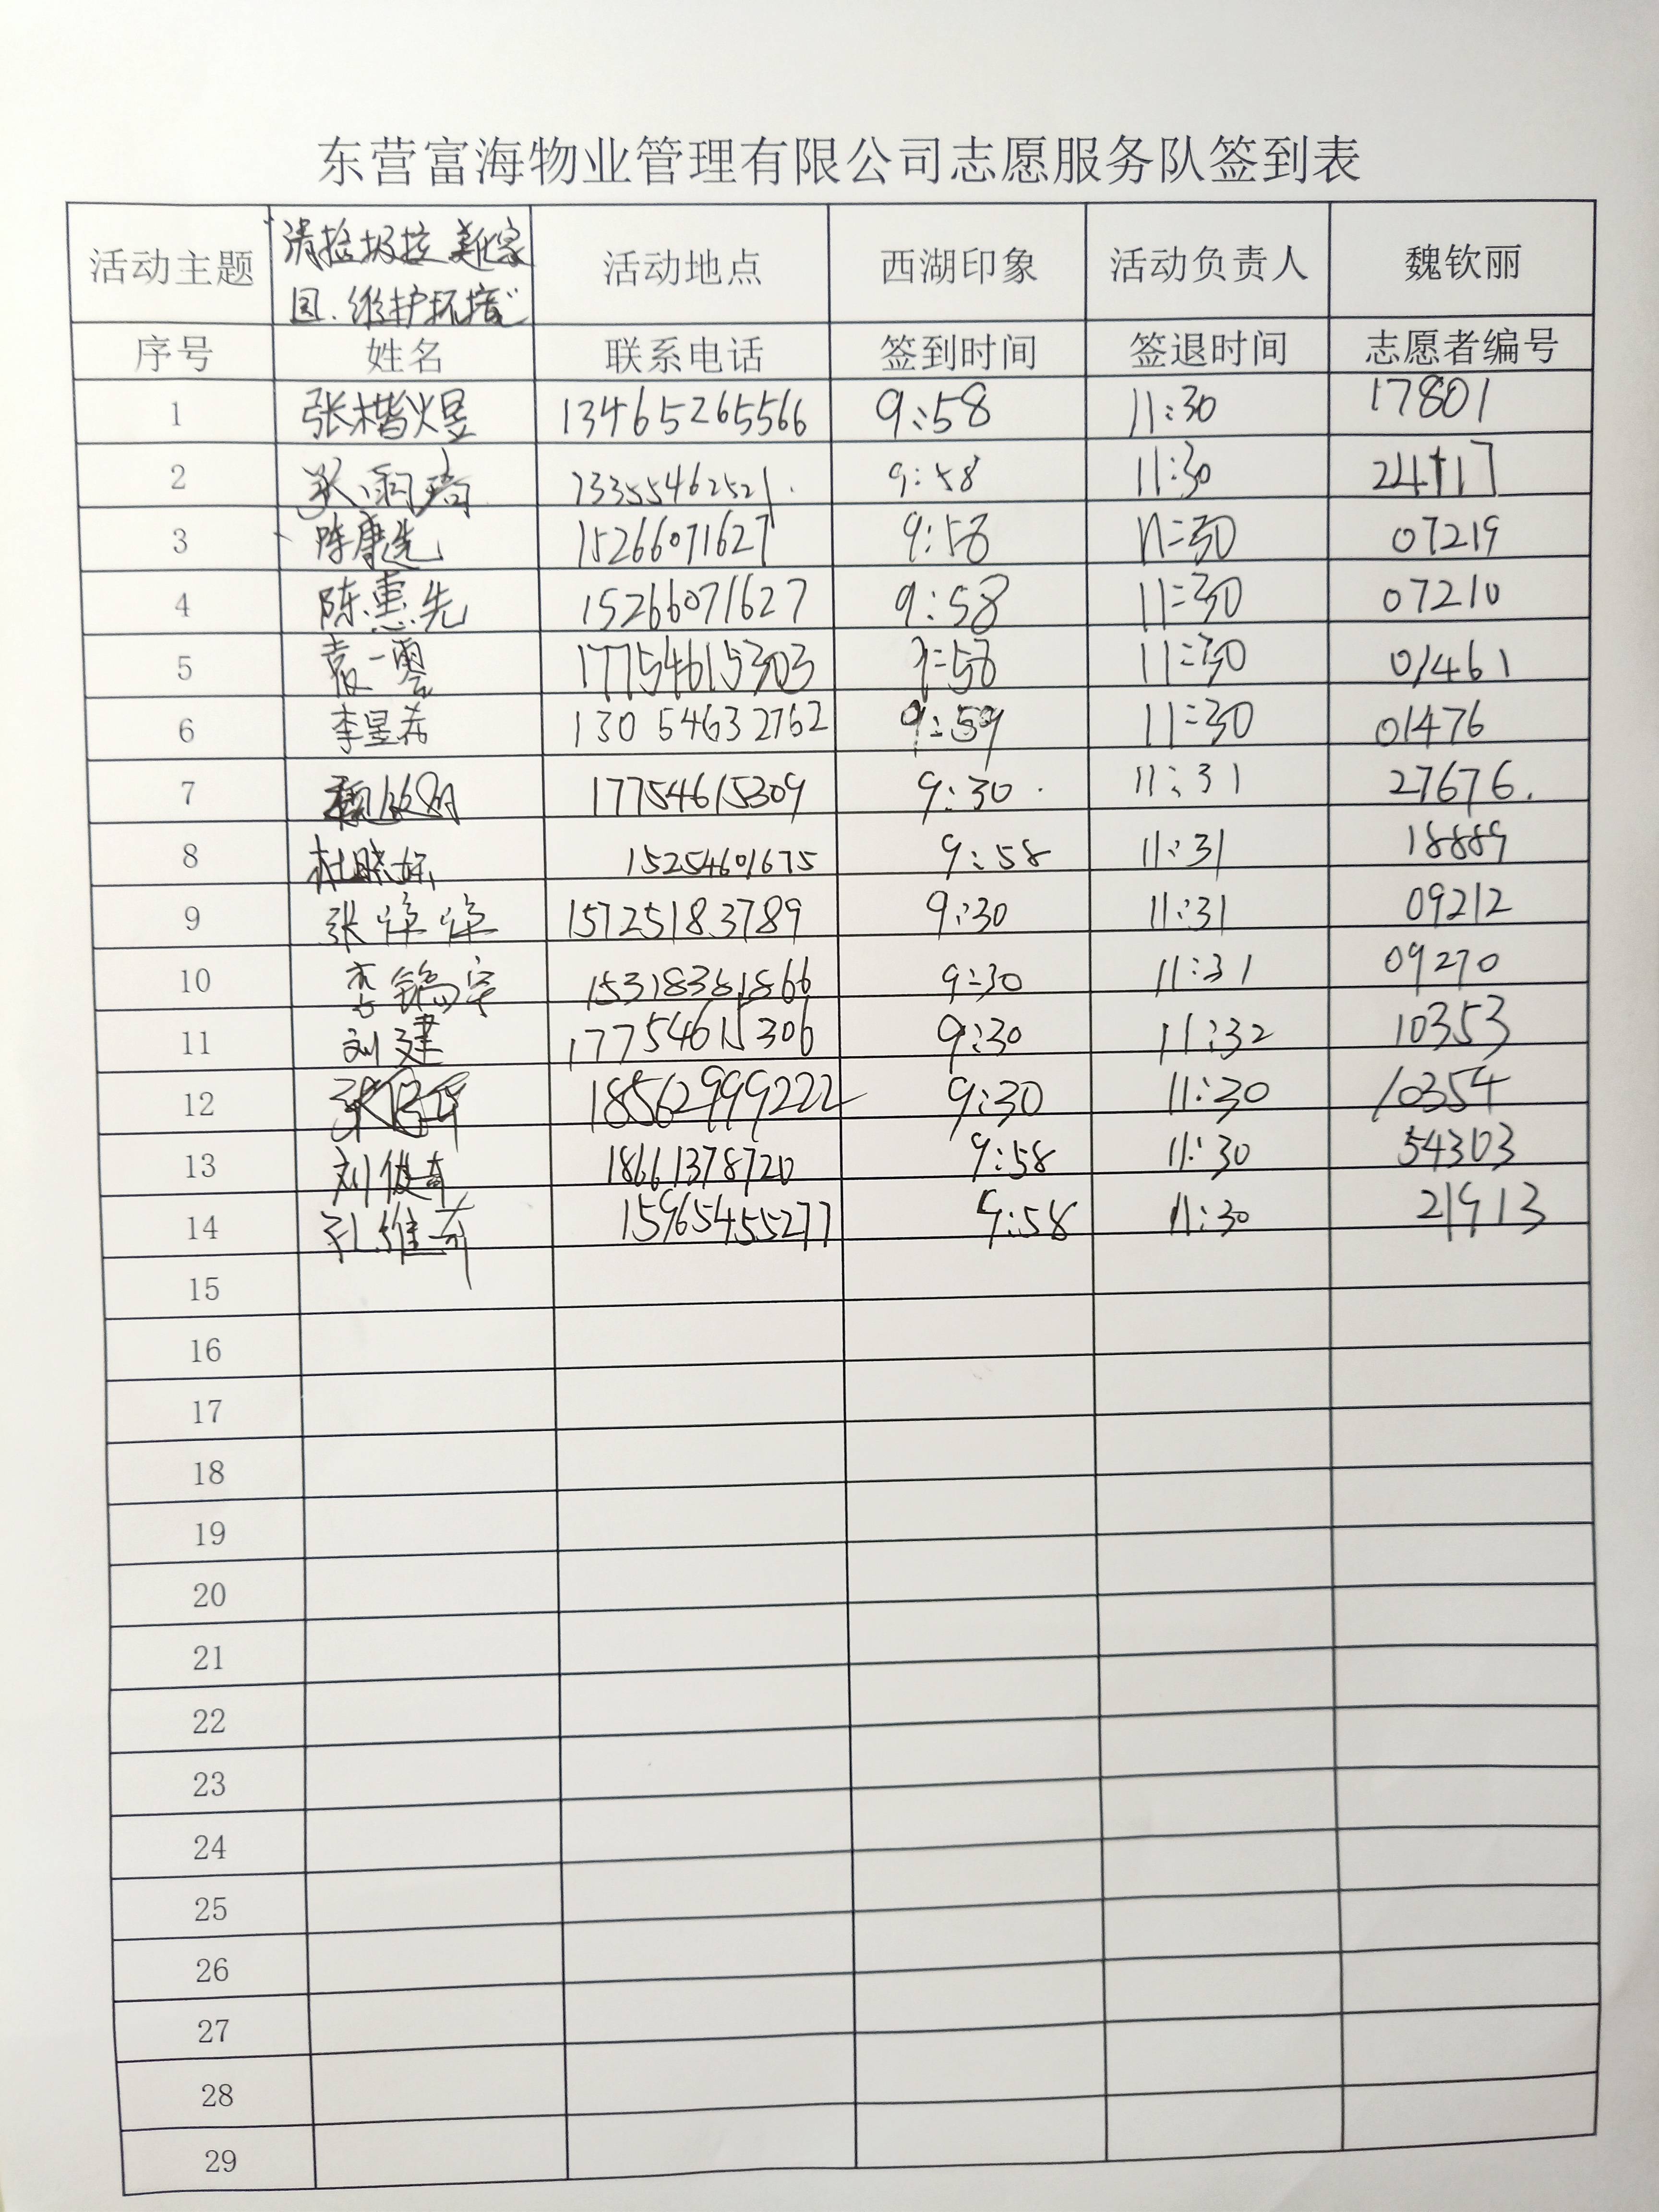 东营富海物业管理有限公司志愿服务队签到表
活动主题 "清捡垃圾 美化家园.维护环境" 活动地点 西湖印象 活动负责人 魏钦丽
序号 姓名 联系电话 签到时间 签退时间 志愿者编号
1 张楷煜 13465265566 9:58 11:30 17801
2 13355462521. 9:58 11:30
3 陈康先 15266071627 9:58 11:30 07219
4 陈惠先 15266071627 9:58 11:30 07210
5 袁一雯 17754615303 9:58 11:30 01461
6 李昱希 13054632762 9:59 11:30 01476
7 17754615309 9:30 11:31 27676.
8 杜晓娜 15254601675 9:58 11:31 18889
9 张 15725183789 9:30 11:31 09212
10 李 15318361866 9:30 11:31 09270
11 刘建 17754615306 9:30 11:32 10353
12 18562999222 9:30 11:30 10354
13 刘俊奇 18661378720 9:58 11:30 54303
14 孔维奇 15965455277 9:58 11:30 21913
15
16
17
18
19
20
21
22
23
24
25
26
27
28
29